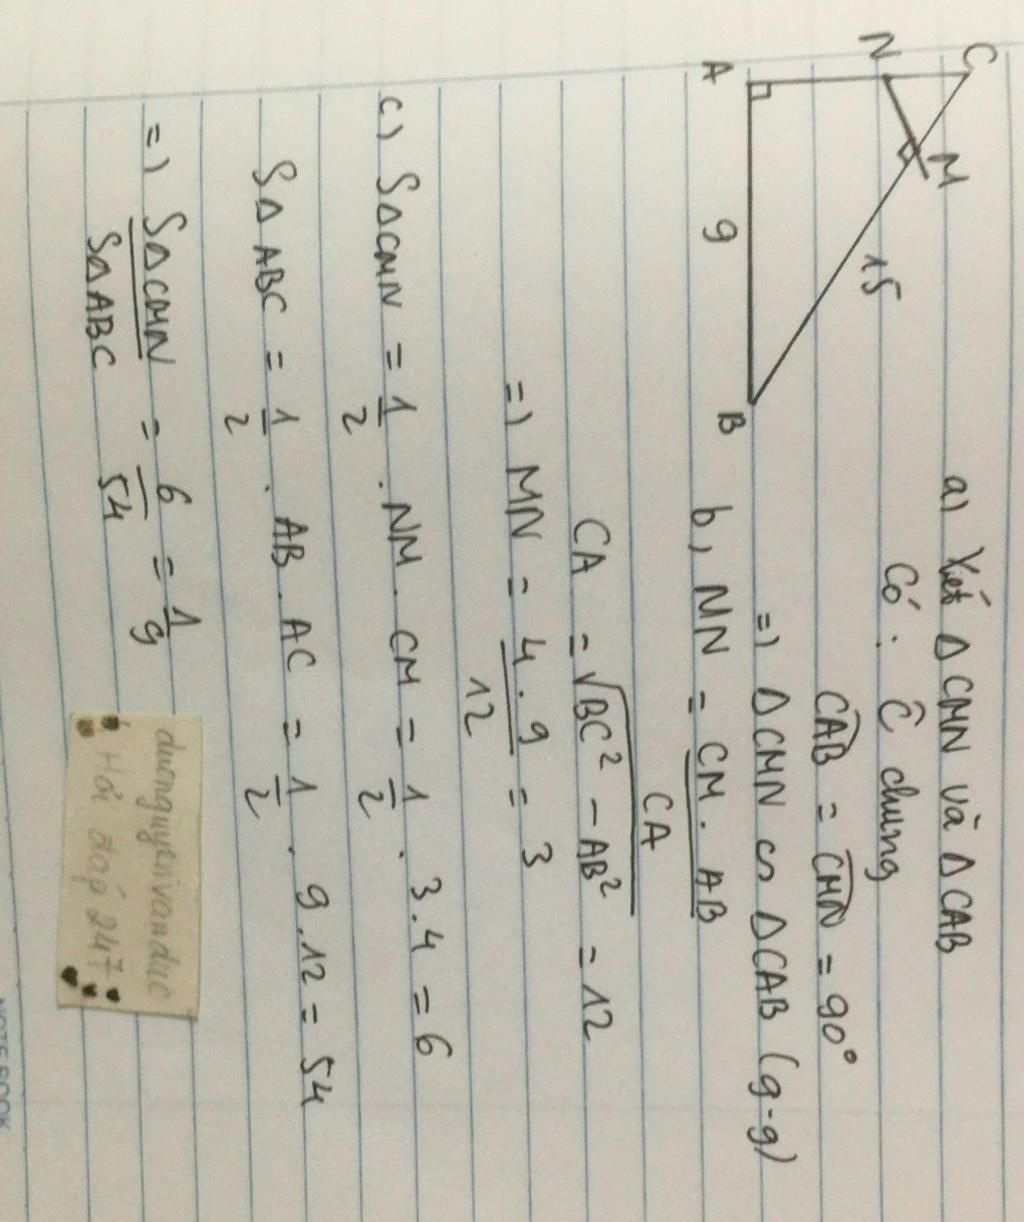 C
N
M
A
15
9
B
a) Xiét ΔCMN và ΔCAB
Có: Ĉ chung
CAB = CMN = 90°
=) ΔCMN ∽ ΔCAB (g-g)
b, MN = CM. AB / CA
CA = √BC² - AB² = 12
=) MN = 4.9 / 12 = 3
c) SΔCMN = 1/2 . NM. CM = 1/2 . 3.4 = 6
SΔABC = 1/2 . AB. AC = 1/2 . 9.12 = 54
=) SΔCMN / SΔABC = 6/54 = 1/9
duongnguyenvanduc
Hỏi đáp 247
NOTEBOOK